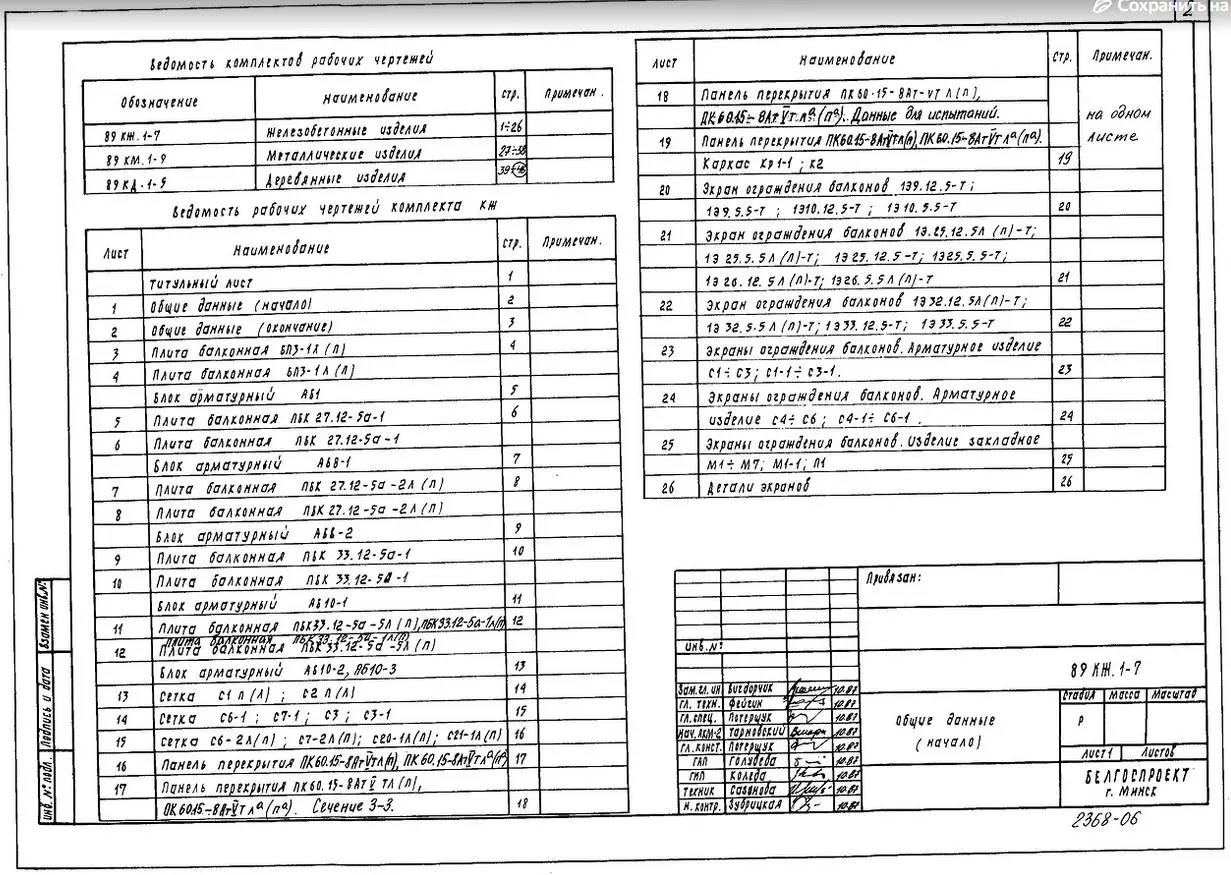 Сохранить на
2
Ведомость комплектов рабочих чертежей
Обозначение Наименование стр. Примечан.
89 КЖ.1-7 Железобетонные изделия 1÷26
89 КМ.1-9 Металлические изделия 27÷38
89 КД.1-5 Деревянные изделия
Ведомость рабочих чертежей комплекта КЖ
Лист Наименование стр. Примечан.
Титульный лист 1
1 Общие данные (начало) 2
2 Общие данные (окончание) 3
3 Плита балконная БП3-1Л(П) 4
4 Плита балконная БП3-1Л(П)
Блок арматурный АБ1 5
5 Плита балконная ПБК 27.12-5а-1 6
6 Плита балконная ПБК 27.12-5а-1
Блок арматурный АБ8-1 7
7 Плита балконная ПБК 27.12-5а-2Л(П) 8
8 Плита балконная ПБК 27.12-5а-2Л(П)
Блок арматурный АБ6-2 9
9 Плита балконная ПБК 33.12-5а-1 10
10 Плита балконная ПБК 33.12-5а-1
Блок арматурный АБ10-1 11
11 Плита балконная ПБК33.12-5а-5Л(П), ПБК33.12-5а-1Л(П) 12
Плита балконная ПБК33.12-5а-1Л(П)
12 Плита балконная ПБК 33.12-5а-5Л(П)
Блок арматурный АБ10-2, АБ10-3 13
13 Сетка С1 П(Л) ; С2 П(Л) 14
14 Сетка С6-1 ; С7-1 ; С3 ; С3-1 15
15 Сетка С6-2Л(П) ; С7-2Л(П); С20-1Л(П); С21-1Л(П) 16
16 Панель перекрытия ПК60.15-8АтVтЛ(П), ПК60.15-8АтVтЛа(Па) 17
17 Панель перекрытия ПК60.15-8АтV тЛ(П),
ПК60.15-8АтVтЛа(Па). Сечение 3-3. 18
Лист Наименование Стр. Примечан.
18 Панель перекрытия ПК60.15-8Ат-VТ Л(П),
ПК60.15-8АтVтЛа(Па). Данные для испытаний. на одном
19 Панель перекрытия ПК60.15-8АтVтЛ(П), ПК60.15-8АтVтЛа(Па). листе
Каркас Кр1-1 ; К2 19
20 Экран ограждения балконов 1Э9.12.5-Т;
1Э9.5.5-Т ; 1Э10.12.5-Т ; 1Э10.5.5-Т 20
21 Экран ограждения балконов 1Э.25.12.5Л(П)-Т;
1Э 25.5.5Л(П)-Т; 1Э25.12.5-Т; 1Э25.5.5-Т;
1Э26.12.5Л(П)-Т; 1Э26.5.5Л(П)-Т 21
22 Экран ограждения балконов 1Э32.12.5Л(П)-Т;
1Э 32.5.5Л(П)-Т; 1Э33.12.5-Т; 1Э33.5.5-Т 22
23 Экраны ограждения балконов. Арматурное изделие
С1÷С3; С1-1÷С3-1. 23
24 Экраны ограждения балконов. Арматурное
изделие С4÷С6 ; С4-1÷С6-1 . 24
25 Экраны ограждения балконов. Изделие закладное
М1÷М7; М1-1; П1 25
26 Детали экранов 26
Взамен инв.№
Подпись и дата
Инв.№ подл.
Привязан:
Инв.№
89 КЖ.1-7
Зам.гл.ин Вигдорчик 10.87
Гл. техн. Фейгин 10.87
Гл.спец. Потерщук 10.87
Нач.АКМ-2 Тарновский 10.87
Гл.конст. Потерщук 10.87
ГАП Голубева 10.87
ГИП Коледа 10.87
Техник Сазонова 10.87
Н.контр. Зубрицкая 10.87
Общие данные
(начало)
Стадия Масса Масштаб
Р
Лист1 Листов
БЕЛГОСПРОЕКТ
г. Минск
2368-06